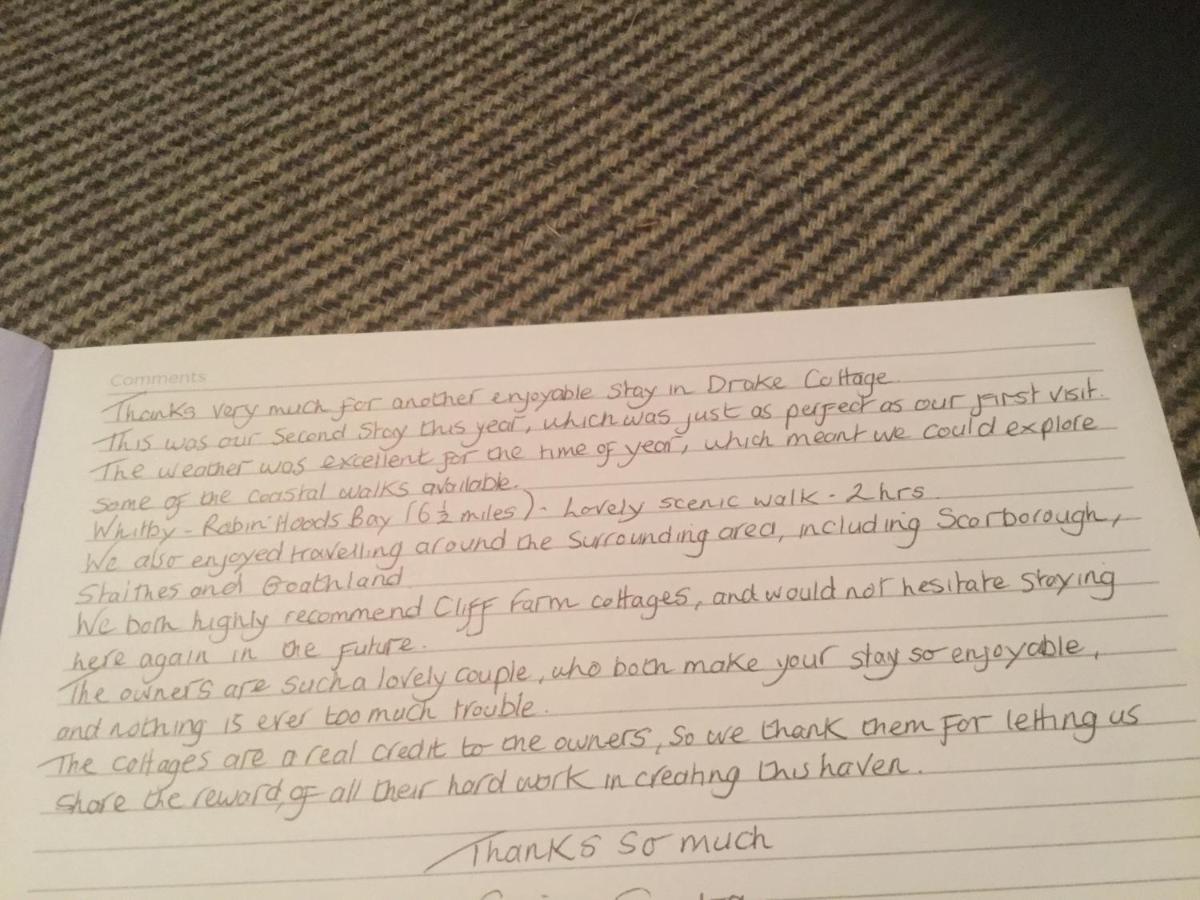 Comments
Thanks very much for another enjoyable stay in Drake Cottage.
This was our second stay this year, which was just as perfect as our first visit.
The weather was excellent for the time of year, which meant we could explore
some of the coastal walks available.
Whitby - Robin Hoods Bay (6½ miles) - Lovely scenic walk - 2 hrs.
We also enjoyed travelling around the surrounding area, including Scarborough,
Staithes and Goathland
We both highly recommend Cliff Farm cottages, and would not hesitate staying
here again in the future.
The owners are such a lovely couple, who both make your stay so enjoyable,
and nothing is ever too much trouble.
The cottages are a real credit to the owners, so we thank them for letting us
share the reward, of all their hard work in creating this haven.
Thanks so much